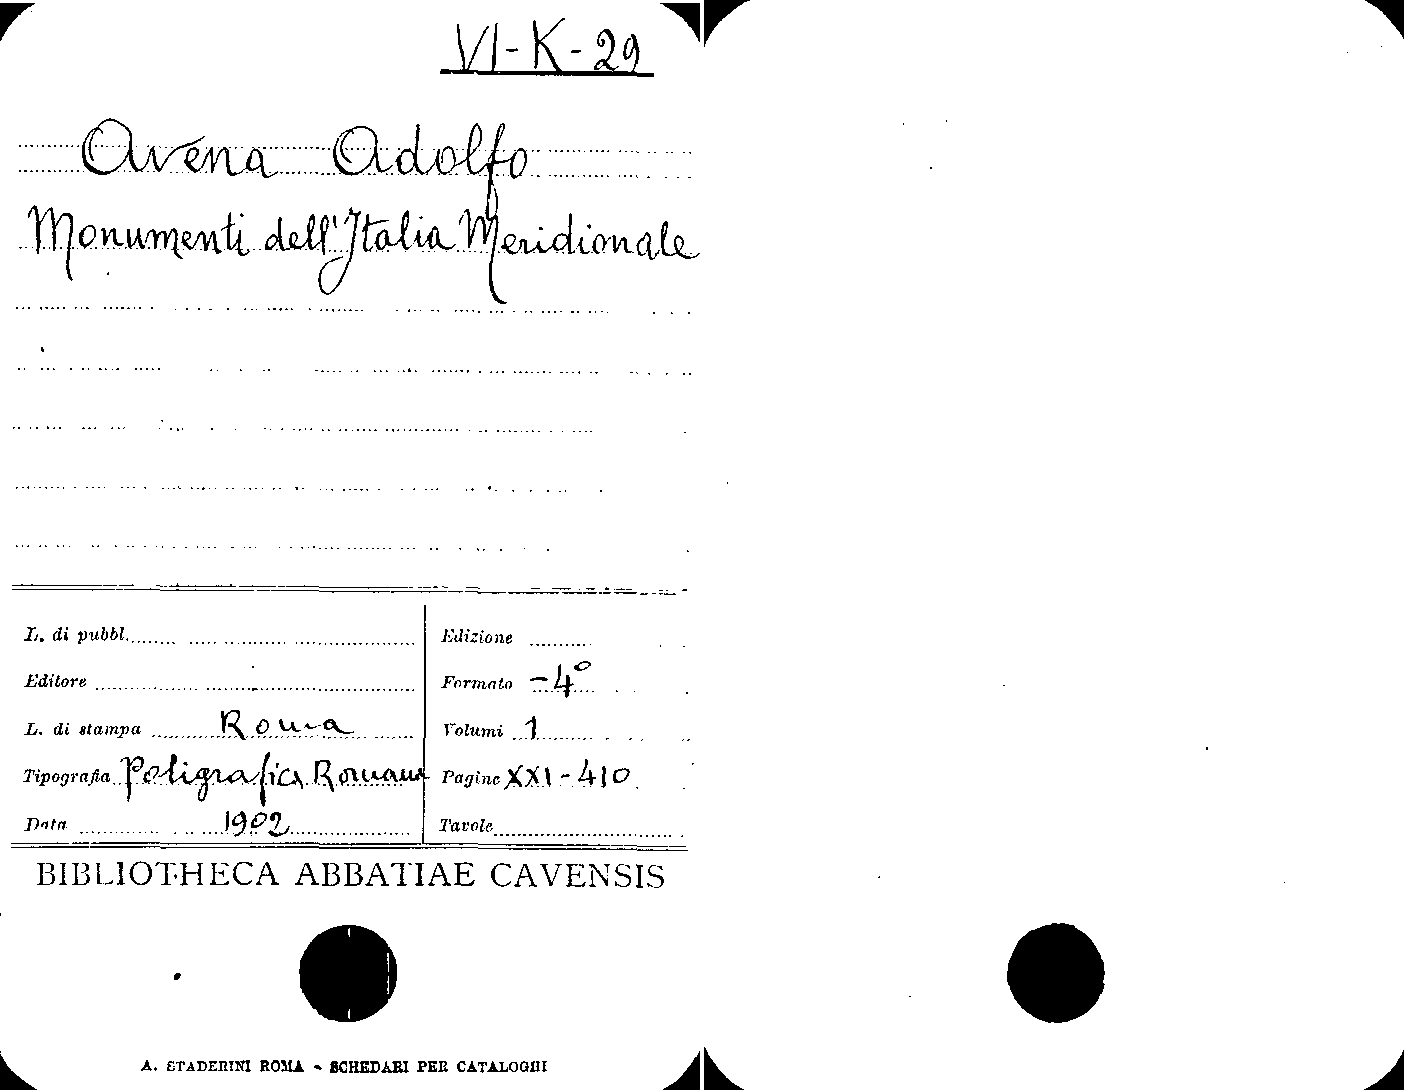 VI-K-29
Avena Adolfo
Monumenti dell'Italia Meridionale
L. di pubbl.
Edizione
Editore
Formato -4°
L. di stampa Roma
Volumi 1
Tipografia Poligrafica Romana
Pagine XXI-410
Data 1902
Tavole
BIBLIOTHECA ABBATIAE CAVENSIS
A. STADERINI ROMA - SCHEDARI PER CATALOGHI